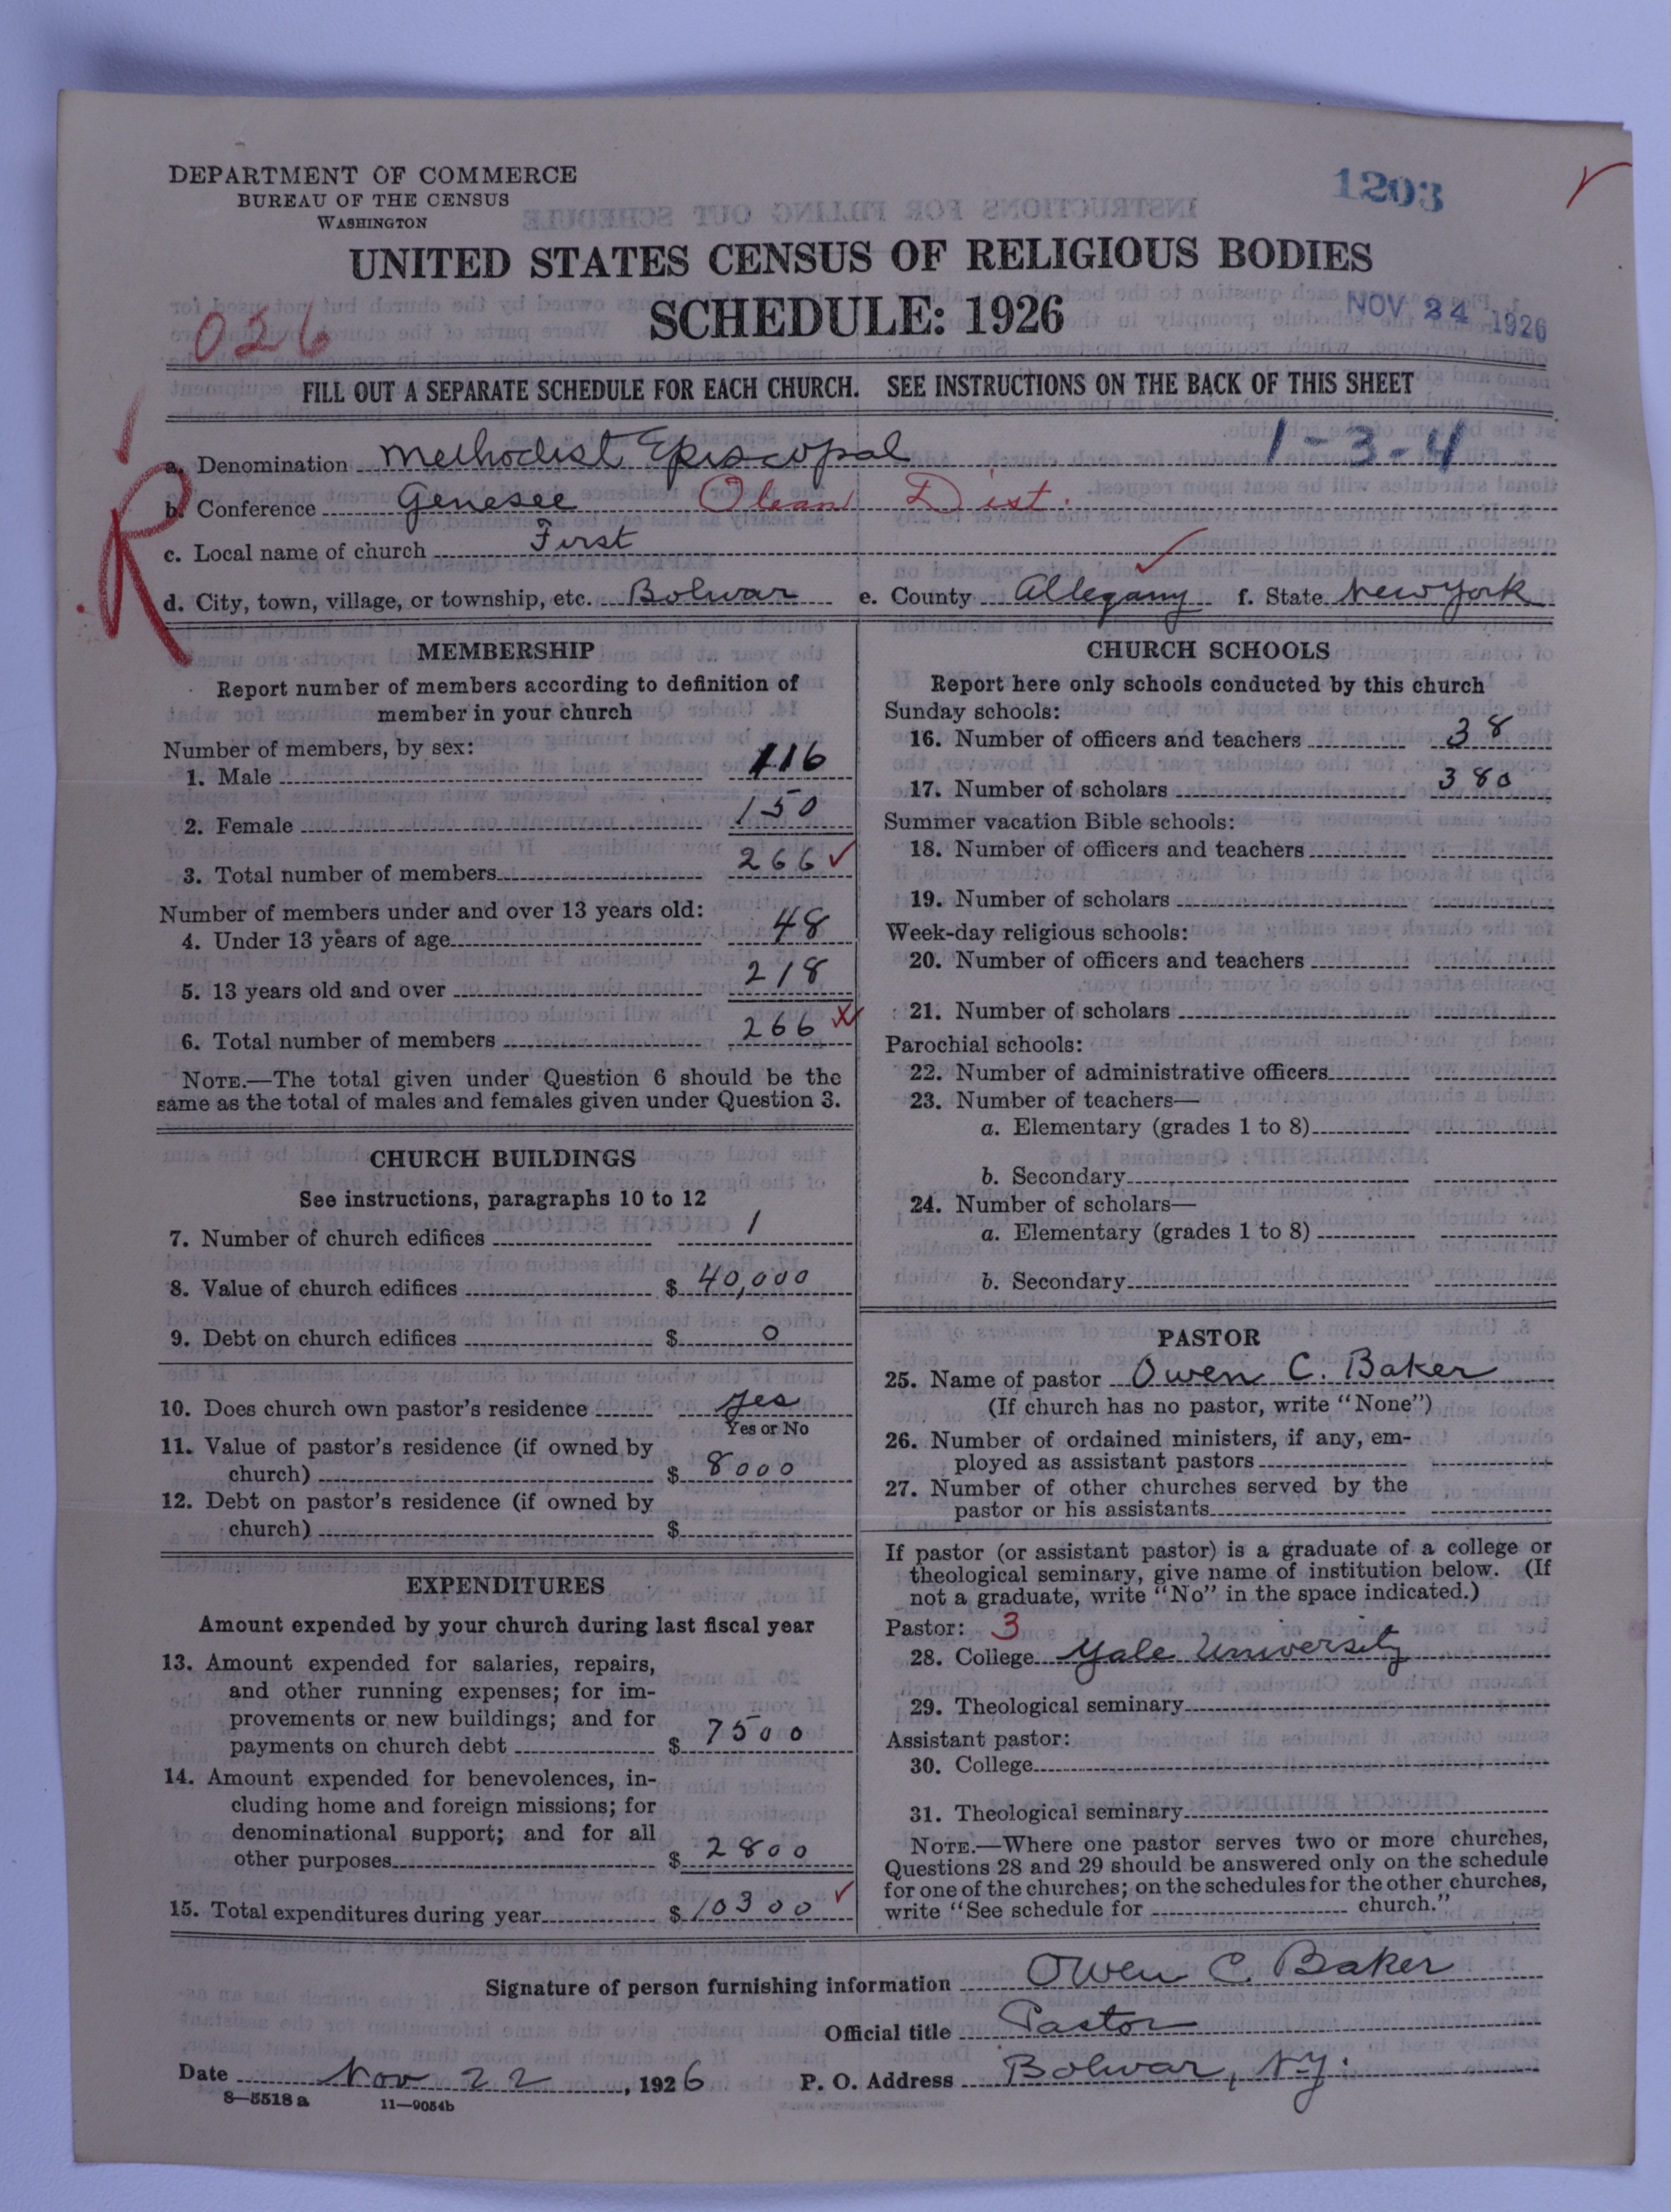 DEPARTMENT OF COMMERCE
BUREAU OF THE CENSUS
WASHINGTON
1203
UNITED STATES CENSUS OF RELIGIOUS BODIES
SCHEDULE: 1926
NOV 24 1926
026
FILL OUT A SEPARATE SCHEDULE FOR EACH CHURCH. SEE INSTRUCTIONS ON THE BACK OF THIS SHEET
R
a. Denomination Methodist Episcopal 1-3-4
b. Conference Genesee Olean Dist.
c. Local name of church First
d. City, town, village, or township, etc. Bolivar e. County Allegany f. State New York
MEMBERSHIP
Report number of members according to definition of
member in your church
Number of members, by sex:
1. Male 116
2. Female 150
3. Total number of members 266
Number of members under and over 13 years old:
4. Under 13 years of age 48
5. 13 years old and over 218
6. Total number of members 266
NOTE.—The total given under Question 6 should be the
same as the total of males and females given under Question 3.
CHURCH BUILDINGS
See instructions, paragraphs 10 to 12
7. Number of church edifices 1
8. Value of church edifices $ 40,000
9. Debt on church edifices $ 0
10. Does church own pastor's residence yes
Yes or No
11. Value of pastor's residence (if owned by
church) $ 8000
12. Debt on pastor's residence (if owned by
church) $
EXPENDITURES
Amount expended by your church during last fiscal year
13. Amount expended for salaries, repairs,
and other running expenses; for im-
provements or new buildings; and for
payments on church debt $ 7500
14. Amount expended for benevolences, in-
cluding home and foreign missions; for
denominational support; and for all
other purposes $ 2800
15. Total expenditures during year $ 10300
CHURCH SCHOOLS
Report here only schools conducted by this church
Sunday schools:
16. Number of officers and teachers 38
17. Number of scholars 380
Summer vacation Bible schools:
18. Number of officers and teachers
19. Number of scholars
Week-day religious schools:
20. Number of officers and teachers
21. Number of scholars
Parochial schools:
22. Number of administrative officers
23. Number of teachers—
a. Elementary (grades 1 to 8)
b. Secondary
24. Number of scholars—
a. Elementary (grades 1 to 8)
b. Secondary
PASTOR
25. Name of pastor Owen C. Baker
(If church has no pastor, write "None")
26. Number of ordained ministers, if any, em-
ployed as assistant pastors
27. Number of other churches served by the
pastor or his assistants
If pastor (or assistant pastor) is a graduate of a college or
theological seminary, give name of institution below. (If
not a graduate, write "No" in the space indicated.)
Pastor: 3
28. College Yale University
29. Theological seminary
Assistant pastor:
30. College
31. Theological seminary
NOTE.—Where one pastor serves two or more churches,
Questions 28 and 29 should be answered only on the schedule
for one of the churches; on the schedules for the other churches,
write "See schedule for church."
Signature of person furnishing information Owen C. Baker
Official title Pastor
Date Nov 22, 1926 P. O. Address Bolivar, N.Y.
8—5518 a 11—9054b